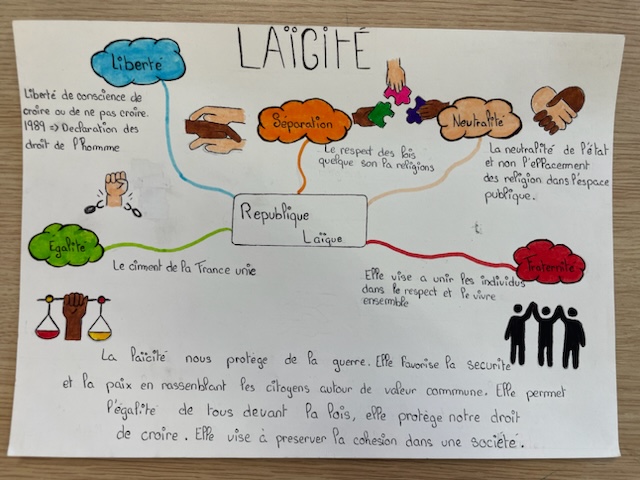 LAÏCITÉ
Liberté
Liberté de conscience de
croire ou de ne pas croire.
1989 => Declaration des
droit de l'homme
Séparation
Le respect des lois
quelque son la religions
Neutralité
La neutralité de l'état
et non l'effacement
des religion dans l'espace
publique.
Republique
Laïque
Egalité
Le ciment de la France unie
Fraternité
Elle vise a unir les individus
dans le respect et le vivre
ensemble
La laïcité nous protège de la guerre. Elle favorise la securite
et la paix en rassenblant les citoyens autour de valeur commune. Elle permet
l'égalité de tous devant la lois, elle protège notre droit
de croire. Elle vise à preserver la cohesion dans une société.